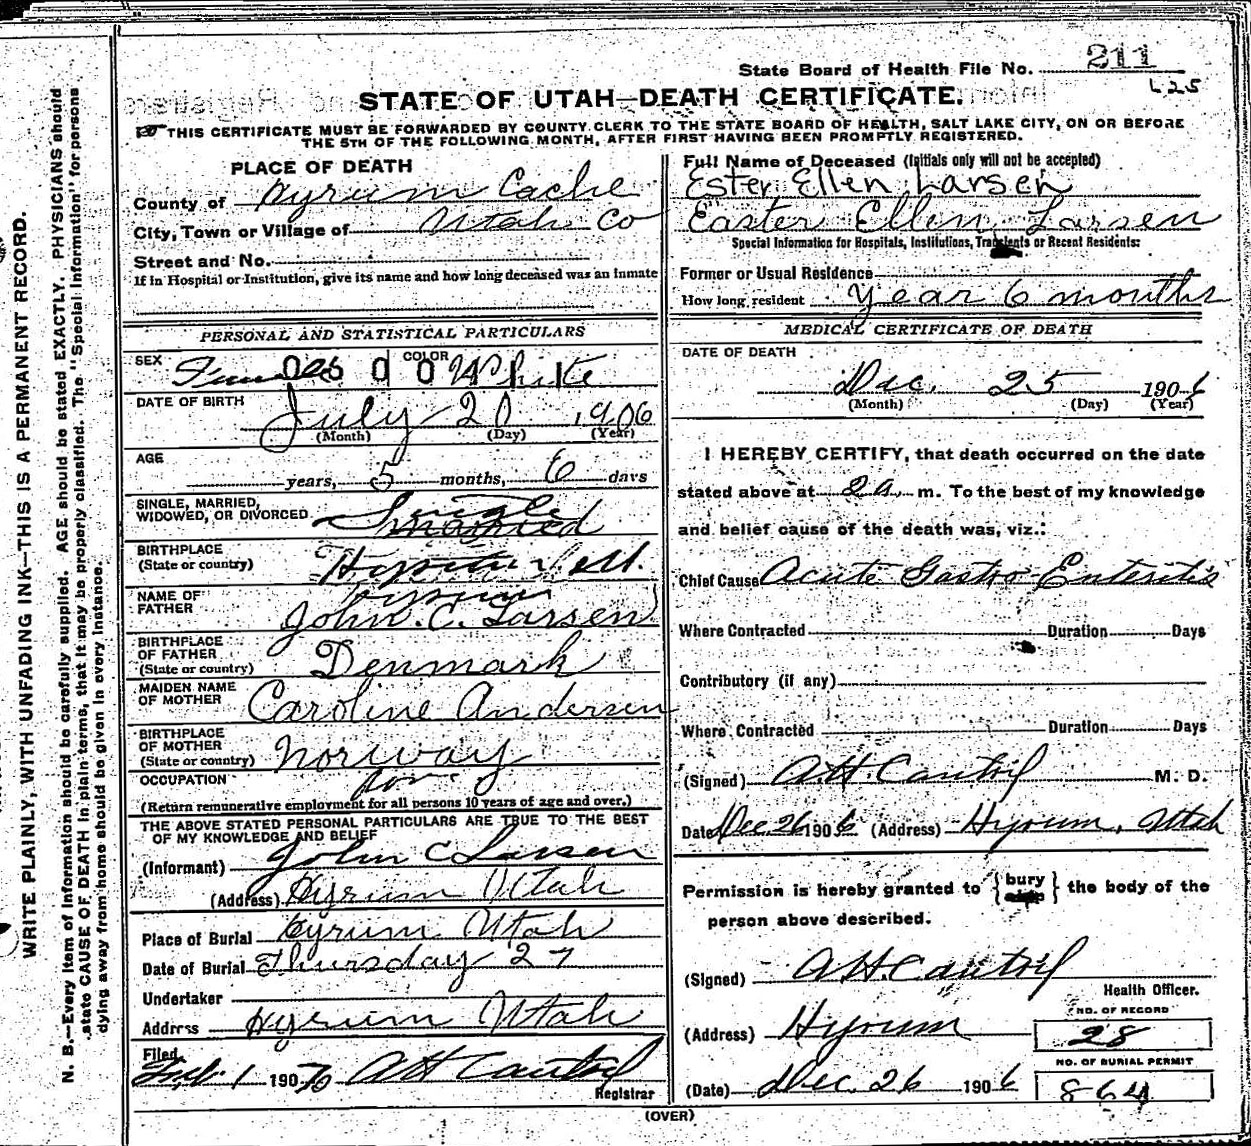 State Board of Health File No. 211
625
STATE OF UTAH—DEATH CERTIFICATE.
THIS CERTIFICATE MUST BE FORWARDED BY COUNTY CLERK TO THE STATE BOARD OF HEALTH, SALT LAKE CITY, ON OR BEFORE
THE 5TH OF THE FOLLOWING MONTH, AFTER FIRST HAVING BEEN PROMPTLY REGISTERED.
WRITE PLAINLY, WITH UNFADING INK—THIS IS A PERMANENT RECORD.
N. B.—Every item of information should be carefully supplied. AGE should be stated EXACTLY. PHYSICIANS should
state CAUSE OF DEATH in plain terms, that it may be properly classified. The "Special Information" for persons
dying away from home should be given in every instance.
PLACE OF DEATH
County of Hyrum Cache
City, Town or Village of Utah Co
Street and No.
If in Hospital or Institution, give its name and how long deceased was an inmate
PERSONAL AND STATISTICAL PARTICULARS
SEX COLOR White
DATE OF BIRTH
July 20 1906
(Month) (Day) (Year)
AGE
years, 5 months, 6 days
SINGLE, MARRIED,
WIDOWED, OR DIVORCED Single
married
BIRTHPLACE
(State or country)
NAME OF
FATHER John. C. Larsen
BIRTHPLACE
OF FATHER
(State or country) Denmark
MAIDEN NAME
OF MOTHER Caroline Andersen
BIRTHPLACE
OF MOTHER
(State or country) Norway
OCCUPATION
(Return remunerative employment for all persons 10 years of age and over.)
THE ABOVE STATED PERSONAL PARTICULARS ARE TRUE TO THE BEST
OF MY KNOWLEDGE AND BELIEF
(Informant) John C Larsen
(Address) Hyrum Utah
Place of Burial Hyrum Utah
Date of Burial Thursday 27
Undertaker
Address Hyrum Utah
Filed
Feb 1 190 AH Cantril
Registrar
Full Name of Deceased (Initials only will not be accepted)
Ester Ellen Larsen
Easter Ellen Larsen
Special Information for Hospitals, Institutions, Transients or Recent Residents:
Former or Usual Residence
How long resident year 6 months
MEDICAL CERTIFICATE OF DEATH
DATE OF DEATH
Dec. 25 1906
(Month) (Day) (Year)
I HEREBY CERTIFY, that death occurred on the date
stated above at 2 a. m. To the best of my knowledge
and belief cause of the death was, viz.:
Chief Cause Acute Gastro Enteritis
Where Contracted Duration Days
Contributory (if any)
Where Contracted Duration Days
(Signed) A.H. Cantril M. D.
Date Dec 26 1906 (Address) Hyrum, Utah
Permission is hereby granted to { bury } the body of the
person above described.
(Signed) AH Cantril
Health Officer.
(Address) Hyrum
NO. OF RECORD
28
(Date) Dec. 26 1906
NO. OF BURIAL PERMIT
864
(OVER)